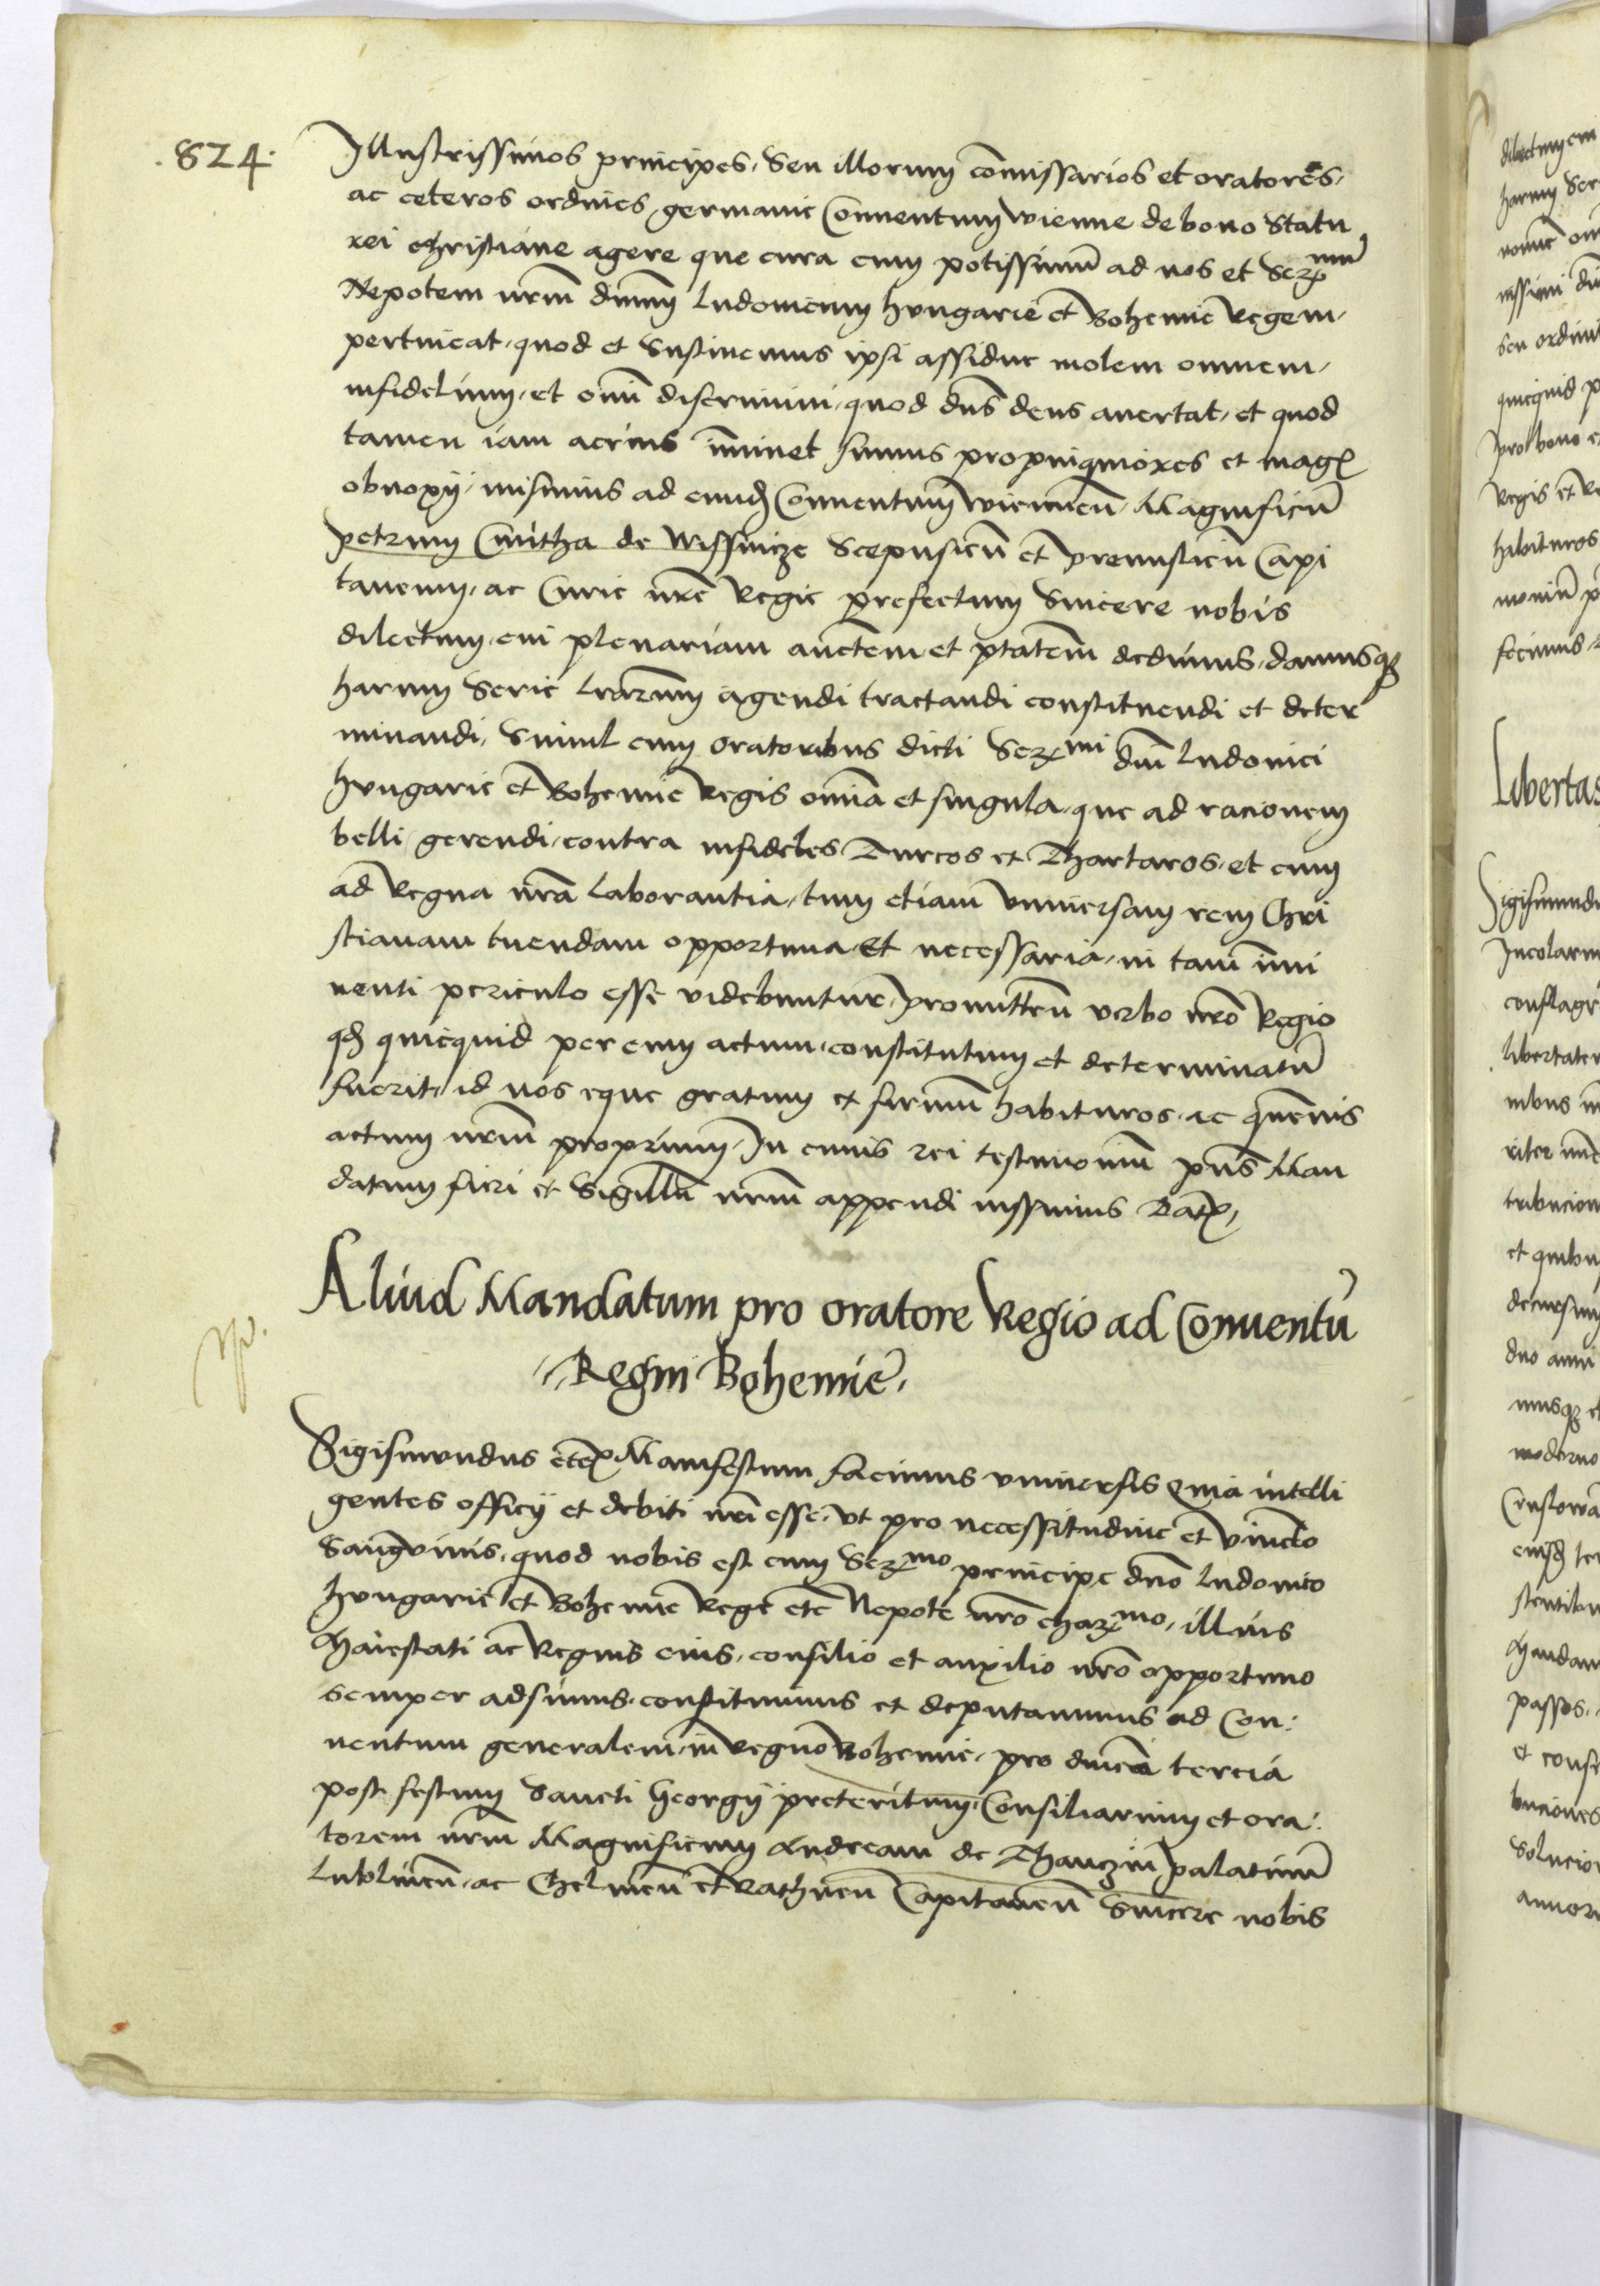 .824.
Illustrissimos principes, Seu illorum com̄issarios et oratores,
ac ceteros ordines germanie Conuentum wienne de bono Statu
rei christiane agere que cura cum potissimum̄ ad nos et Serᵐᵘᵐ
Nepotem nrm̄ dnm̄ Ludouicum hungarie et Bohemie Regem,
pertineat, quod et Sustinemus ipsi assidue molem omnem,
infidelium, et om̄i discrimini, quod dns̄ deus auertat, et quod
tamen iam acrius im̄inet sumus propinquiores et mag
obnoxij, misimus ad eund Conuentum wiennen̄ Magnificū
petrum Cmitha de Wissnicze Scepusien̄ et premislien̄ Capi
taneum, ac Curie nrē Regie prefectum Sincere nobis
dilectum, cui plenariam auctem̄ et ptatem̄ dedimus, damusqz
harum Serie lrarum agendi tractandi constituendi et deter
minandi, Simul cum oratoribus dicti Serᵐⁱ dni Ludouici
hungarie et Bohemie Regis omīa et singula, que ad racionem
belli gerendi, contra infideles Turcos et Thartaros, et cum
ad Regna nrā laborantia, tum etiam vniuersam rem Chri
stianam tuendam opportuna et necessaria, in tam im̄i
nenti periculo esse videbuntur, promitten̄ verbo nrō Regio
qd quicquid per eum actum, constitutum et determinatū
fuerit, id nos eque gratum et firmum habituros, ac quemuis
actum nrm̄ proprium, In cuius rei testimonium pns̄ Man
datum fieri et Sigillū nrm̄ appendi iussimus Dat,
Aliud Mandatum pro oratore Regio ad Conuentū
Regni Bohemie,
Sigismundus etc Manifestum facimus vniuersis Quia intelli
gentes officij et debiti nri esse, vt pro necessitudine et vinclo
Sanguinis, quod nobis est cum Serᵐᵒ principe dnō Ludouico
hungarie et Bohemie Rege etc Nepote nrō charᵐᵒ, illius
Maiestati ac Regnis eius, consilio et auxilio nrō opportuno
semper adsimus, constituimus et deputauimus ad Con:
uentum generalem, in regno Bohemie, pro dnīca tercia
post festum Sancti Georgij preteritum, Consiliarium et ora:
torem nrm̄ Magnificum Andream de Thanczin palatinū
Lublinen̄, ac Chelmen̄ et Rathnen̄ Capitaneū Sincere nobis